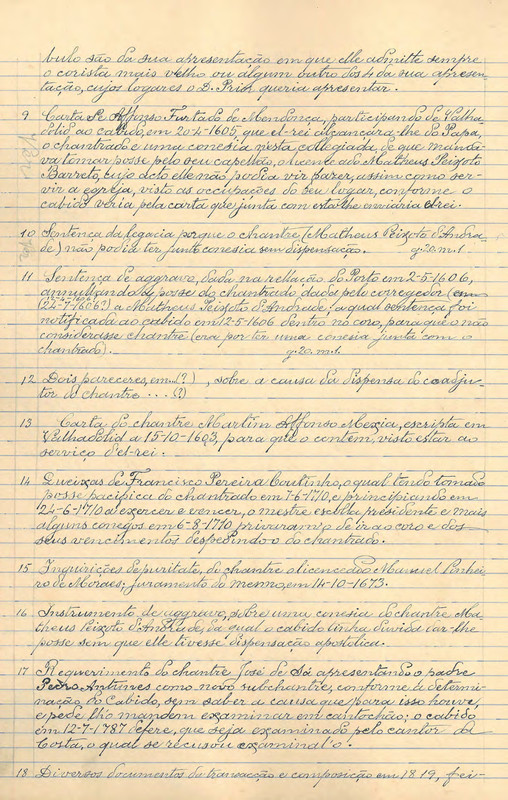 bulo são da sua apresentação em que elle admitte sempre
o corista mais velho ou algum outro dos 4 da sua apresen-
tação, cujos logares o D. Prior queria apresentar.
9 Carta de Affonso Furtado de Mendonça, participando de Valha-
dolid ao cabido, em 20-4-1605, que el-rei alcançára-lhe do Papa,
o chantrado e uma conesia nesta collegiada, de que manda-
va tomar posse pelo seu capellão, o licenceado Matheus Peixoto
Barreto, cujo acto elle não podia vir fazer, assim como ser-
vir a egreja, visto as occupações do seu logar, conforme o
cabido veria pela carta que junta com esta lhe enviaria elrei.
10 Sentença da legacia porque o chantre (Matheus Peixoto d'Andra-
de) não podia ter junta conesia sem dispensação. g. 20. m. 1.
11 Sentença de aggravo, dada na rellação do Porto em 2-5-1606,
annullando a posse do chantrado, dada pelo corregedor (em
(24-7-1606?) a Matheus Peixoto d'Andrade, a qual sentença foi
notificada ao cabido em 12-5-1606 dentro no coro, para que o não
considerasse chantre (era por ter uma conesia junta com o
chantrado). g. 20. m. 1.
12 Dois pareceres, em...(?) , sobre a causa da dispensa do coadju-
tor do chantre ... (?)
13 Carta do chantre Martim Affonso Mexia, escripta em
Valhadolid a 15-10-1603, para que o contem, visto estar ao
serviço d'el-rei.
14 Queixas de Francisco Pereira Coutinho, o qual tendo tomado
posse pacifica do chantrado em 7-6-1710, e principiando em
24-6-1710 a exercer e vencer, o mestre escola presidente e mais
alguns conegos em 6-8-1710 privaram-o de ir ao coro e dos
seus vencimentos despedindo-o do chantrado.
15 Inquirições de puritate, do chantre o licenceado Manuel Pinhei-
ro de Moraes; juramento do mesmo, em 14-10-1673.
16 Instrumento de aggravo, sobre uma conesia do chantre Ma-
theus Peixoto d'Andrade, da qual o cabido tinha duvida dar-lhe
posse sem que elle tivesse dispensação apostolica.
17 Requerimento do chantre José de Sá apresentando o padre
Pedro Antunes como novo subchantre, conforme a determi-
nação do Cabido, sem saber a causa que para isso houve,
e pede lh'o mandem examinar em cantochão; o cabido
em 12-7-1787 defere, que seja examinado pelo cantor
Costa, o qual se recusou examinal'o.
18 Diversos documentos da transacção e composição em 1819, fei-